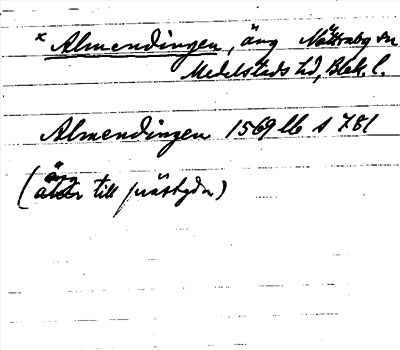 * Almendingen, äng Nättraby sn
Medelstads hd, Blek. l.
Almendingen 1569 lb s 781
(äng till prästgdn)